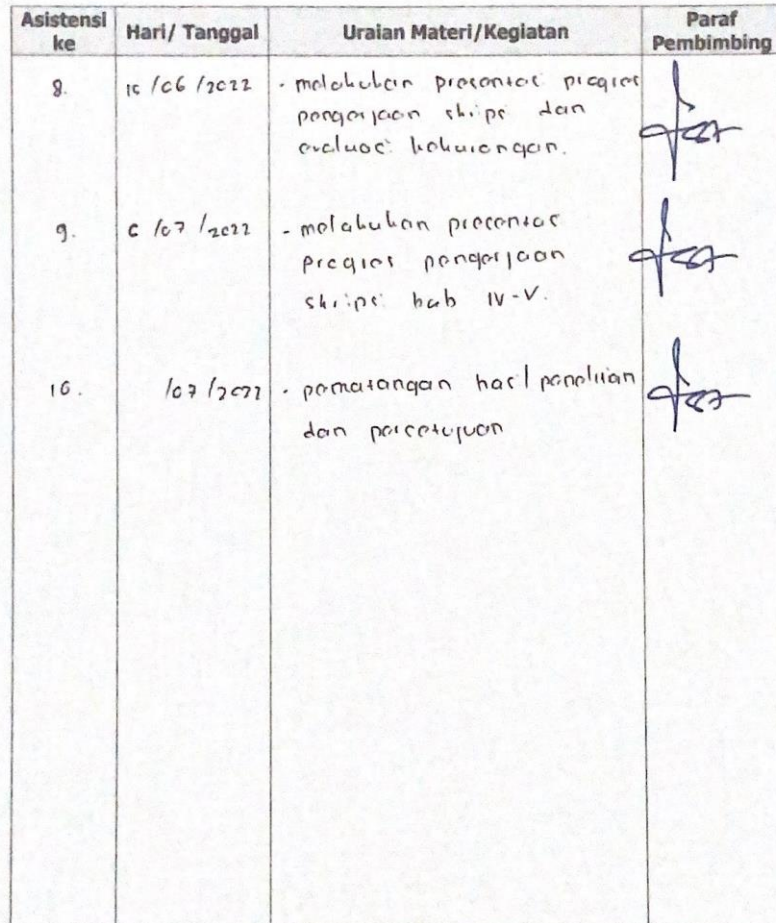 Asistensi ke
Hari/ Tanggal
Uraian Materi/Kegiatan
Paraf Pembimbing
8.
/06/2022
- melakukan presentasi progres
pengerjaan skripsi dan
evaluasi kekurangan.
9.
/07/2022
- melakukan presentasi
progres pengerjaan
skripsi bab IV-V.
10.
/07/2022
- pematangan hasil penelitian
dan persetujuan